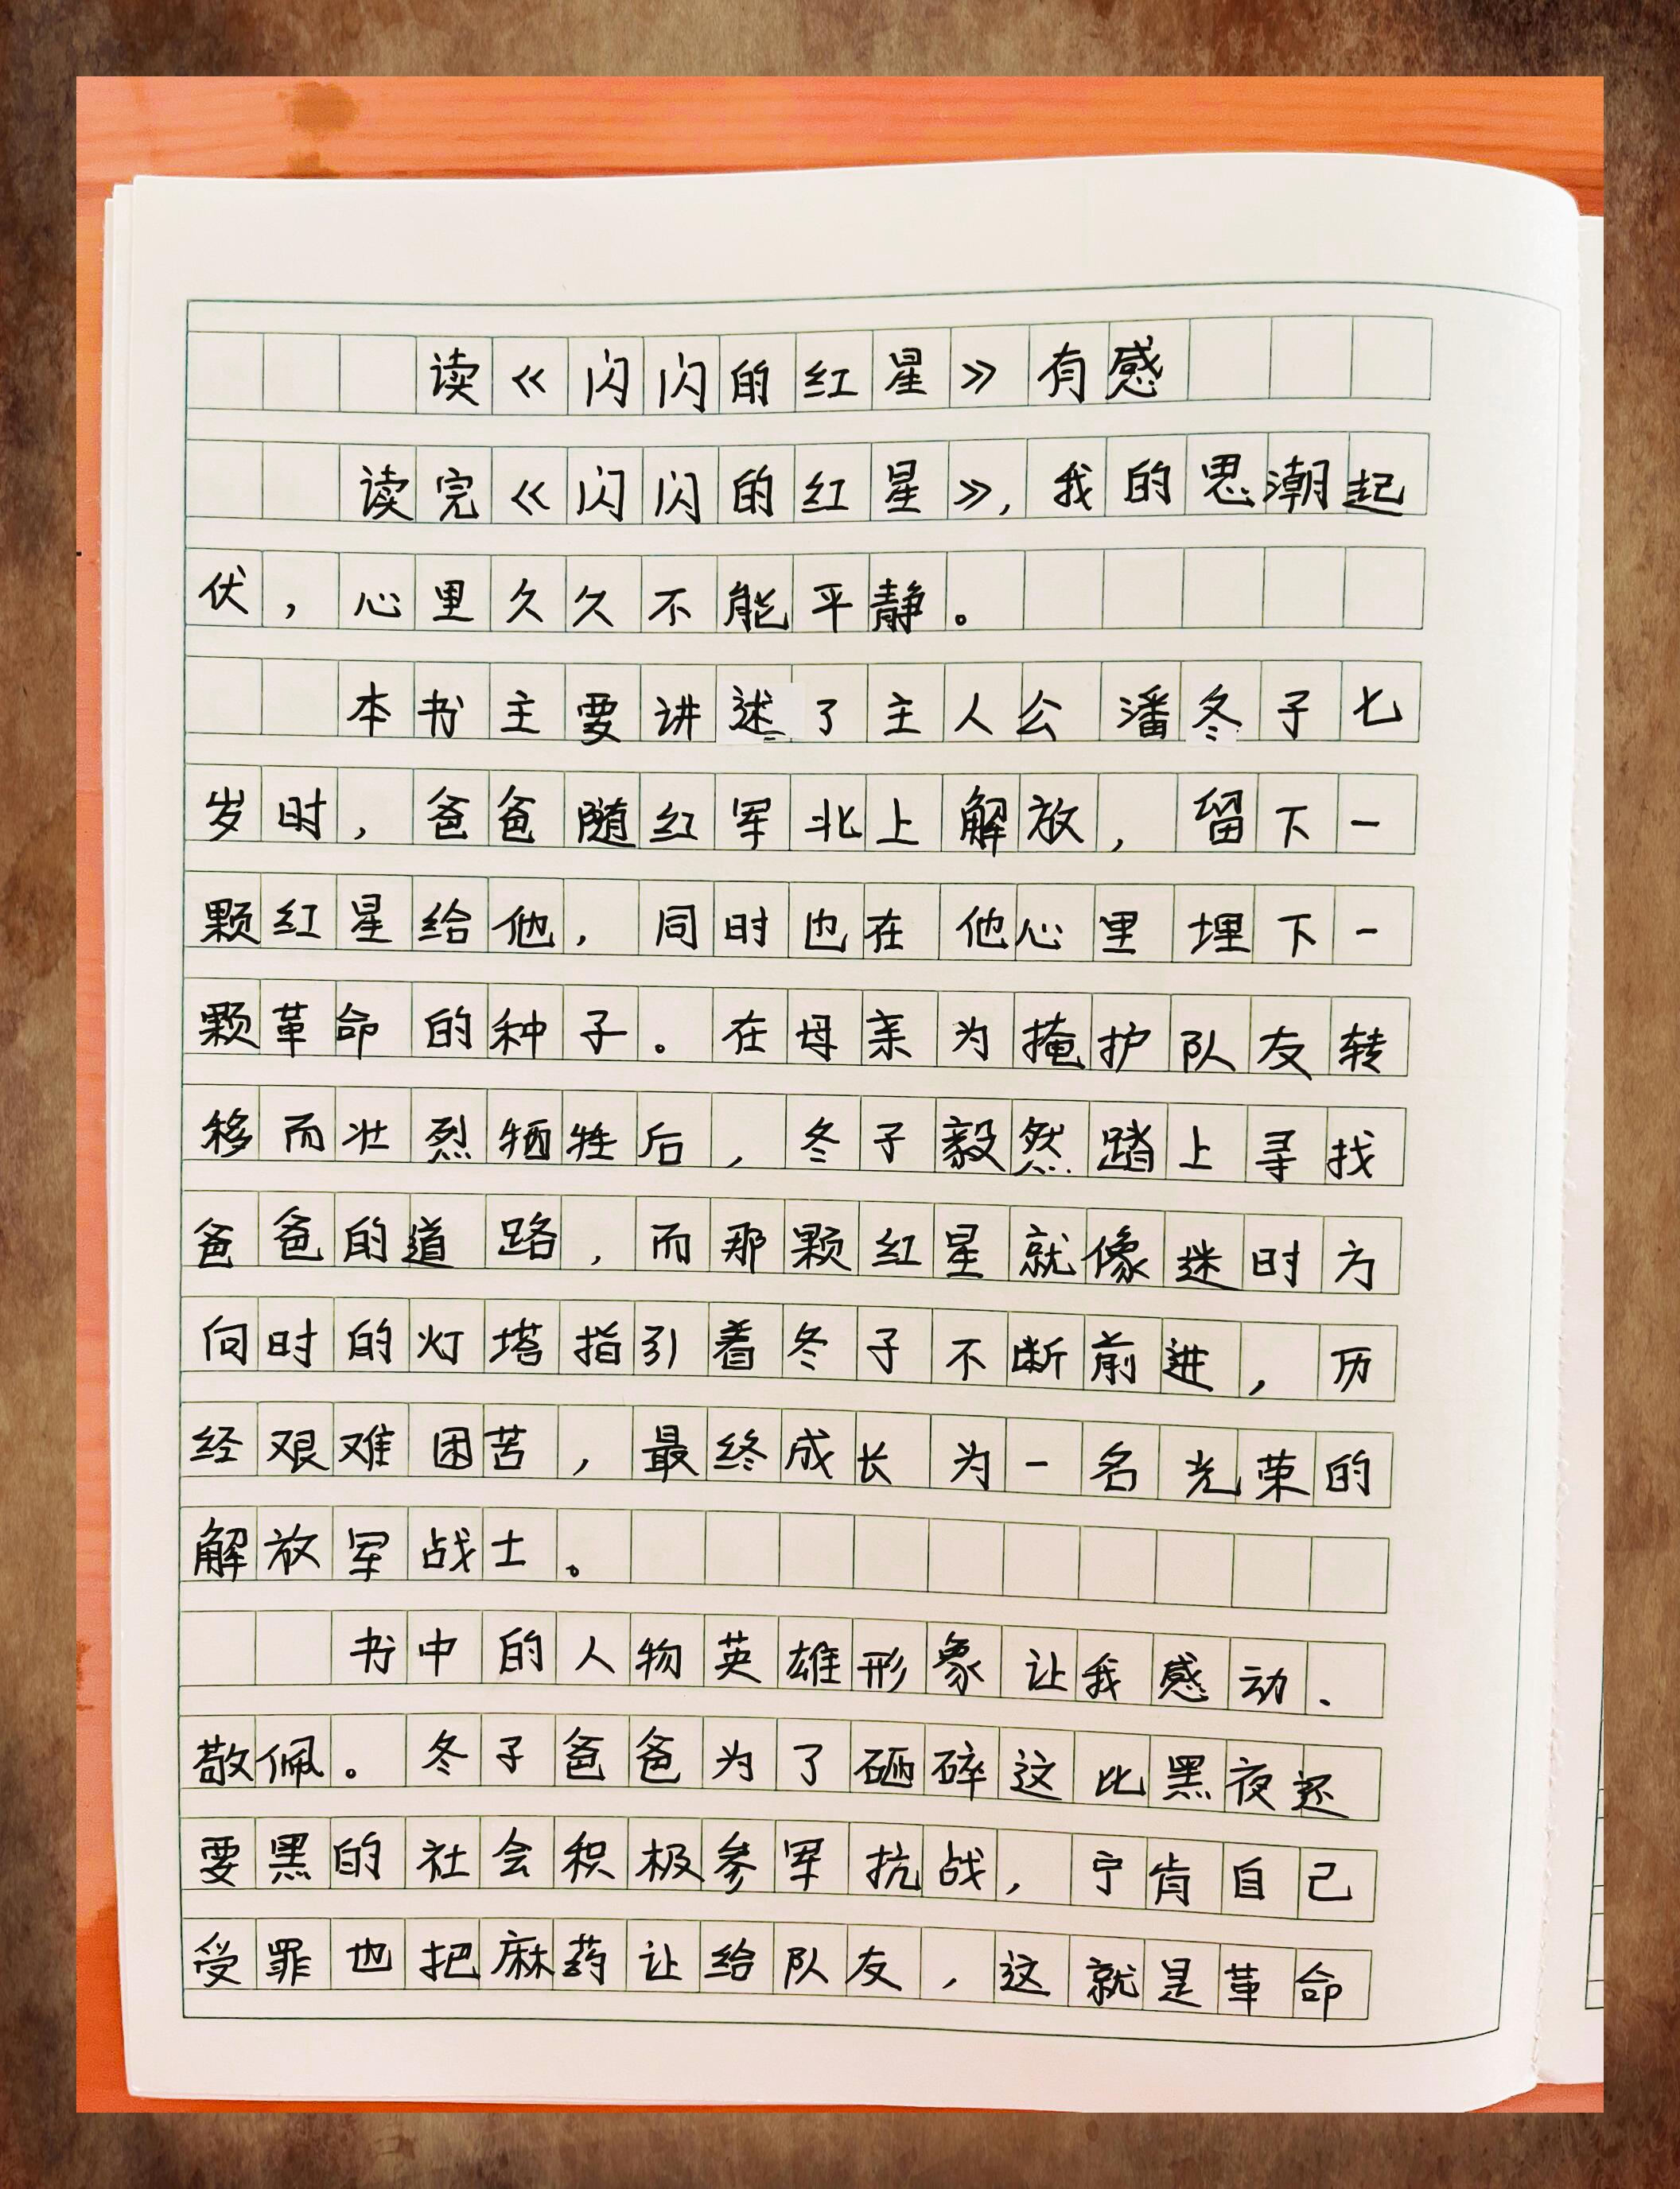 读《闪闪的红星》有感
读完《闪闪的红星》,我的思潮起
伏,心里久久不能平静。
本书主要讲述了主人公潘冬子七
岁时,爸爸随红军北上解放,留下一
颗红星给他,同时也在他心里埋下一
颗革命的种子。在母亲为掩护队友转
移而壮烈牺牲后,冬子毅然踏上寻找
爸爸的道路,而那颗红星就像迷时方
向时的灯塔指引着冬子不断前进,历
经艰难困苦,最终成长为一名光荣的
解放军战士。
书中的人物英雄形象让我感动、
敬佩。冬子爸爸为了砸碎这比黑夜还
要黑的社会积极参军抗战,宁肯自己
受罪也把麻药让给队友,这就是革命